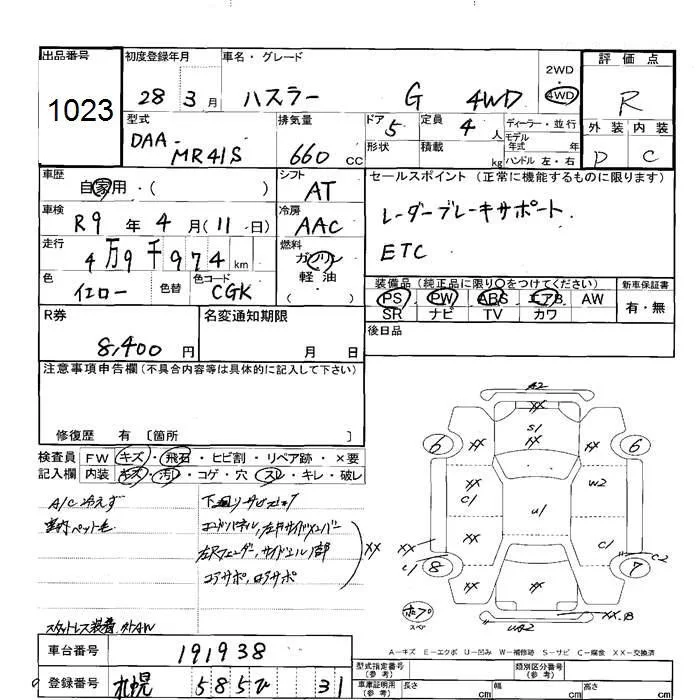 出品番号 初度登録年月 車名・グレード 2WD 評価点
1023 28 3月 ハスラー G 4WD 4WD R
型式 排気量 ドア 定員 ディーラー・並行 外装 内装
DAA- MR41S 660 CC 5 4 人 モデル 年式 年 D C
形状 積載 kg ハンドル 左・右
車歴 シフト セールスポイント (正常に機能するものに限ります)
自家用・( ) AT
車検 冷房 レーダーブレーキサポート
R9 年 4 月 (11 日) AAC
走行 燃料 ETC
4万9千974 km ガソリン
軽油
色 色替 色コード ( ) 装備品 (純正品に限り○をつけてください) 新車保証書
イエロー CGK PS PW ABS エアB AW 有・無
SR ナビ TV カワ
R券 名変通知期限 後日品
8,400 円 月 日
注意事項申告欄 (不具合内容等は具体的に記入して下さい)
修復歴 有 〔箇所 〕
検査員 FW キズ・飛石・ヒビ割・リペア跡・×要
記入欄 内装 キズ・汚レ・コゲ・穴・スレ・キレ・破レ
A/C冷えず
室内ペット毛
コアサポ,ロアサポ
XX
A2
XX
S1
6 XX XX XX 6
XX W2
C1 U1
XX XX C1
C1 8 XX 7 C2
XX.B
スペア UA2
A-キズ E-エクボ U-凹み W-補修跡 S-サビ C-腐食 XX-交換済
車台番号 191938
登録番号 札幌 585 ひ 31
型式指定番号 (参考) 類別区分番号 (参考)
車庫証明用 (参考) 長さ cm 幅 cm 高さ cm